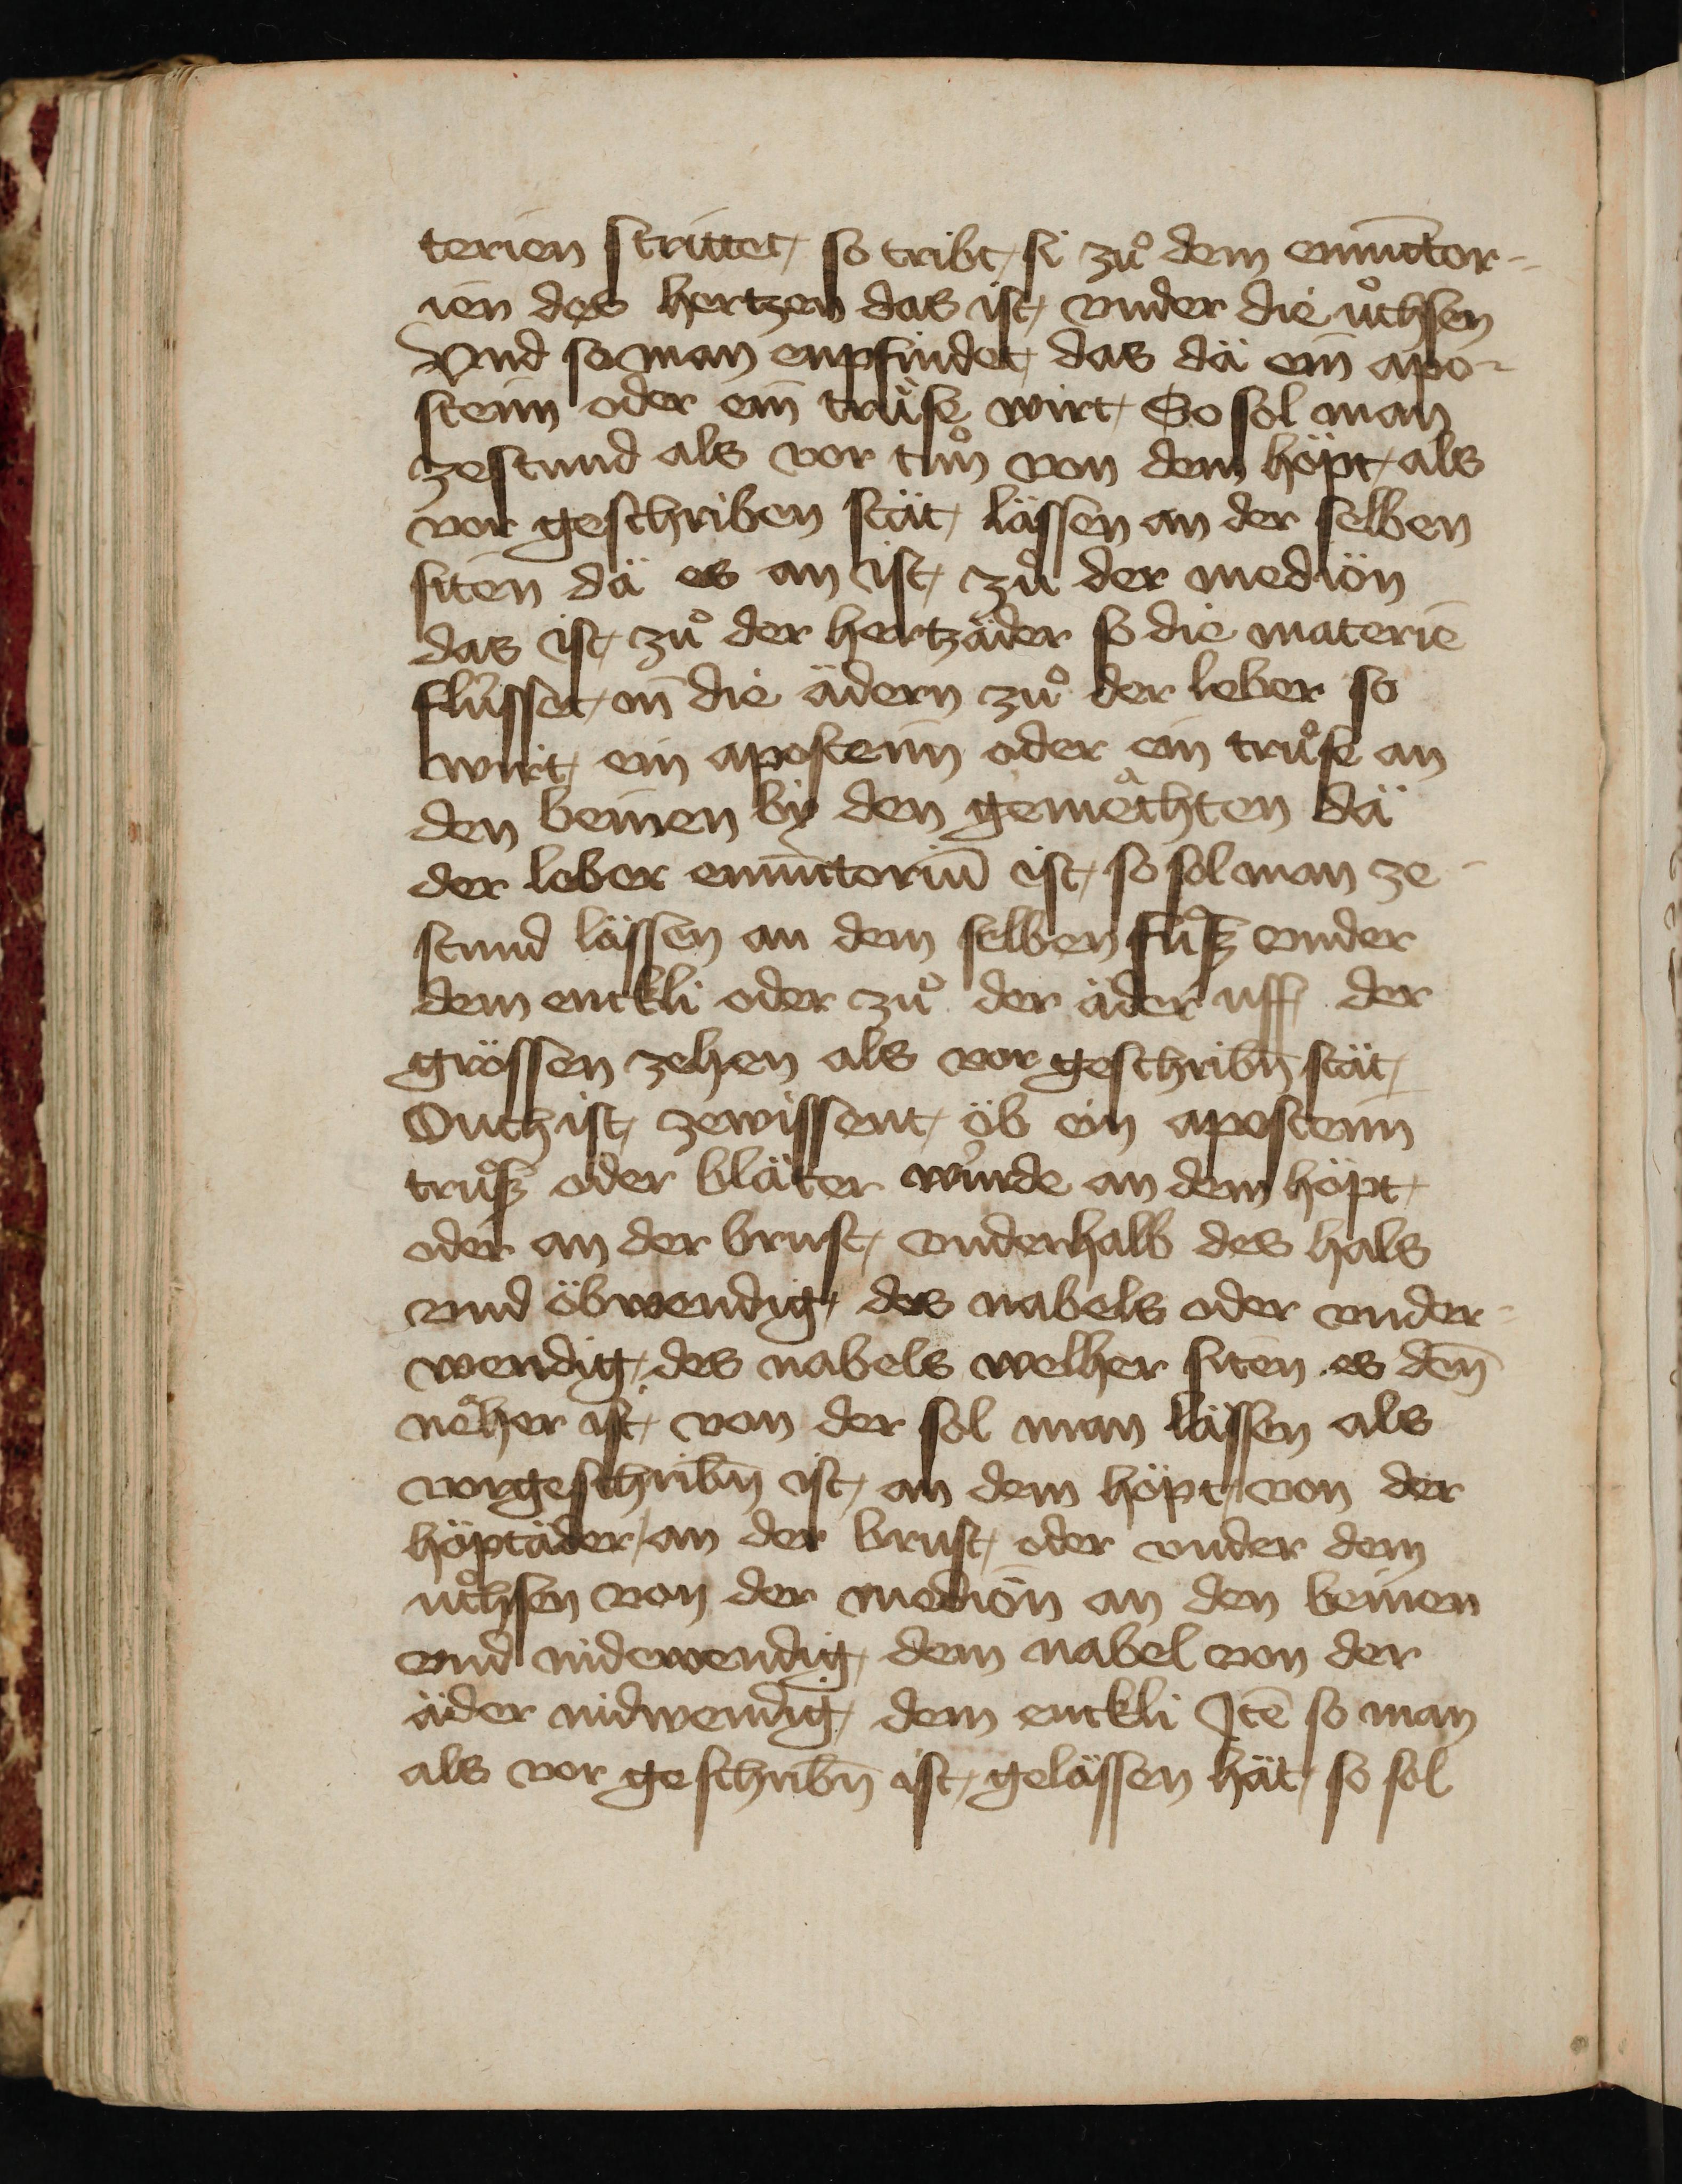 terien strittet / so tribt / si zuͦ dem emūctor-
ien des hertzen das ist / vnder die uͦchsen
Vnd so man enpfindet / das dä ein apo-
stem oder ein truͤse wirt / So sol man
zestund als vor tuͦn von dem höpt / als
vor geschriben stät / lässen an der selben
siten dä es an ist / zuͦ der mediön
das ist / zuͦ der hertzäder so die materie
flússet / in die ädern zuͦ der leber so
wirt / ein apostem oder ein truͦse an
den beinen by den gemeͣchten dä
der leber emūctoriū ist / so sol man ze-
stund lässen an dem selben fuͦsz vnder
dem enckli oder zuͦ der äder uff der
grössen zehen als vor geschribn̄ stät /
Ouch ist / zewissent / öb ein apostem
truͦsz oder bläter wúrde an dem höpt /
oder an der brust / vnderhalb des hals
vnd öbwendig / des nabels oder vnder-
wendig / des nabels welher siten es dem̄
neͣher ist / von der sol man lässen als
vorgeschribn̄ ist / an dem höpt / von der
höptäder / an der brust / oder vnder dem
uͦchsen von der mediön an den beinen
vnd nidewendig / dem nabel von der
äder nidwendig / dem enckli Itē so man
als vor geschribn̄ ist / gelässen hät / so sol